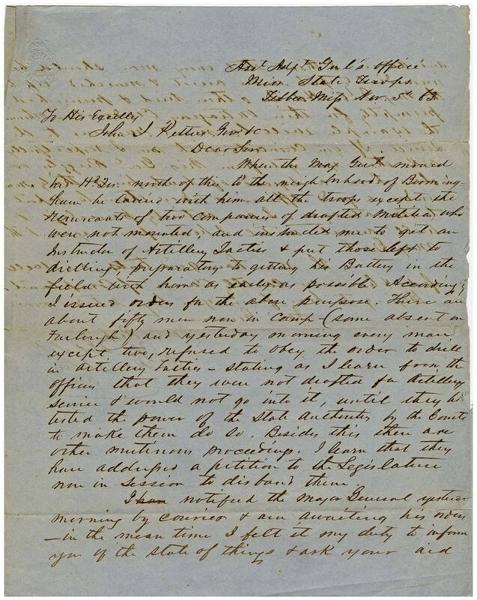 Asst Adjt Genl's office
Miss State Troops
Miss Nov 5th 63
To His Excellcy
John J. Pettus Gov &c
Dear Sir
When the Maj Genl moved
his Hd Qrs north of this to the neighborhood of Birming-
ham he carried with him all the troops except the
remnants of two companies of drafted Militia who
were not mounted, and instructed me to get an
instructor of Artillery Tactics & put those left to
drilling, preparatory to getting his Battery in the
field with him as early as possible. Accordingly
I issued orders for the above purpose. There are
about fifty men now in camp (some absent on
Furlough) and yesterday morning every man
except two, refused to obey the order to drill
in artillery tactics - stating as I learn from the
officers that they were not drafted for Artillery
service & would not go into it, until they had
tested the power of the State Authorities by the Courts
to make them do so. Besides this there are
other mutinous proceedings. I learn that they
have addressed a petition to the Legislature
now in session to disband them
I notified the Major General yester
morning by courier & am awaiting his orders
- in the mean time I felt it my duty to inform
you of the state of things & ask your aid